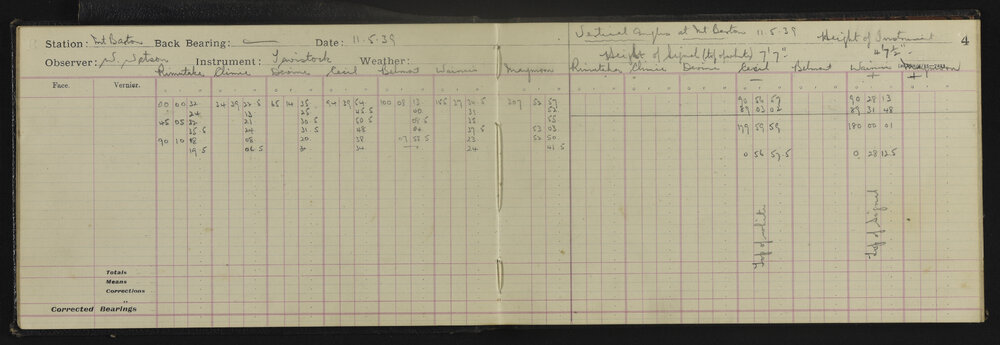 Station: Mt Barton Back Bearing: Date: 11.5.39
Observer: Instrument: Tavistock Weather:
Rimutaka Climie Devine Cecil Belmont Wainui
Face. Vernier.
00 00 32 24 39 22.5 65 14 35 94 39 54 100 05 13 155 37 207 52 57
24 13 25 45.5 00 31 52
45 05 32 21 30.5 50.5 08.5 35 55
25.5 24 31.5 48 04 37.5 53 03
90 10 18 08 20 38 07 55.5 23 52 50
19.5 06.5 34 24 41.5
Totals
Means
Corrections
"
Corrected Bearings
Vertical Angles at Mt Barton 11.5.39 Height of Instrument 4
Height of Signal (top of white) 7'7" 4'7½"
Rimutaka Climie Devine Cecil Belmont Wainui
— +
90 56 57 90 28 13
89 03 02 89 31 48
179 59 59 180 00 01
0 56 57.5 0 28 12.5
Top of white
Top of Signal